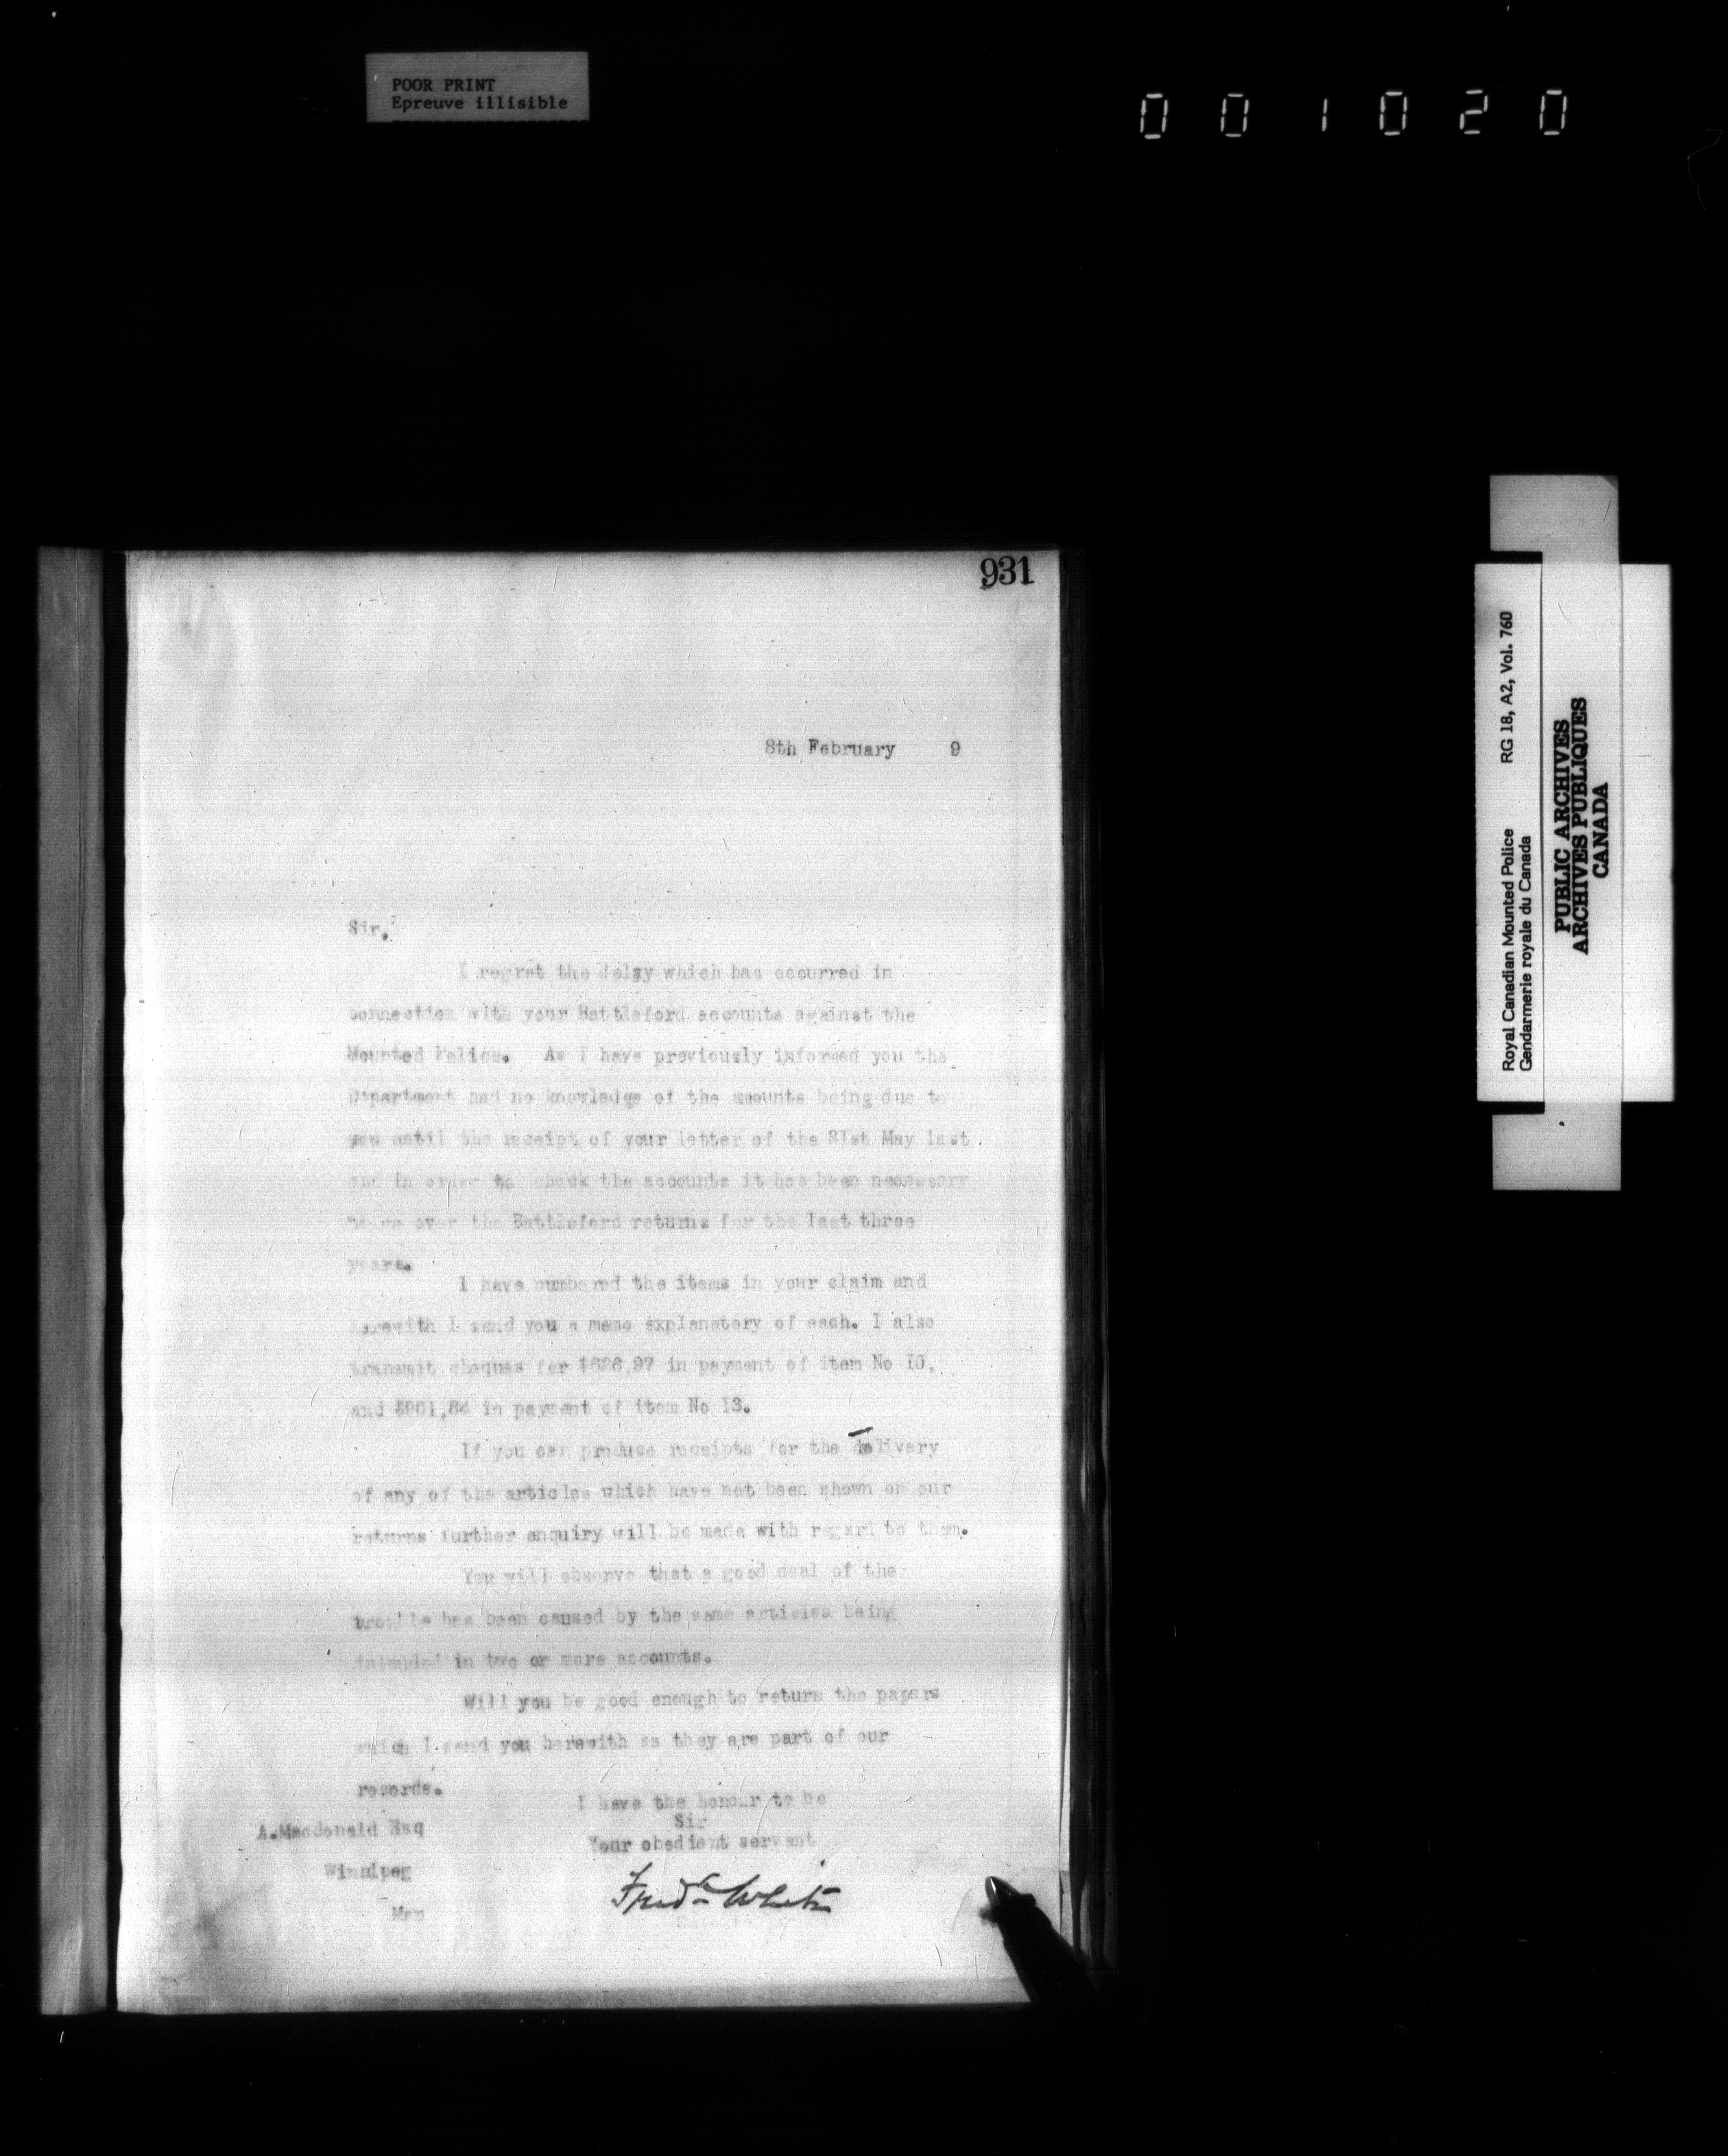 POOR PRINT
Epreuve illisible
001020
931
8th February 9
Sir.
I regret the delay which has occurred in
connection with your Battleford accounts against the
Mounted Police. As I have previously informed you the
Department had no knowledge of the amounts being due to
you until the receipt of your letter of the 31st May last
and in order to check the accounts it has been necessary
to go over the Battleford returns for the last three
years.
I have numbered the items in your claim and
herewith I send you a memo explanatory of each. I also
transmit cheques for in payment of item No I0.
and in payment of item No I3.
If you can produce receipts for the delivery
of any of the articles which have not been shown on our
returns further enquiry will be made with regard to them.
You will observe that a good deal of the
trouble has been caused by the same articles being
in two or more accounts.
Will you be good enough to return the papers
which I send you herewith as they are part of our
records.
I have the honour to be
Sir
Your obedient servant
A.Macdonald Esq
Winnipeg
Man
Fred White
Royal Canadian Mounted Police RG 18, A2, Vol. 760
Gendarmerie royale du Canada
PUBLIC ARCHIVES
ARCHIVES PUBLIQUES
CANADA